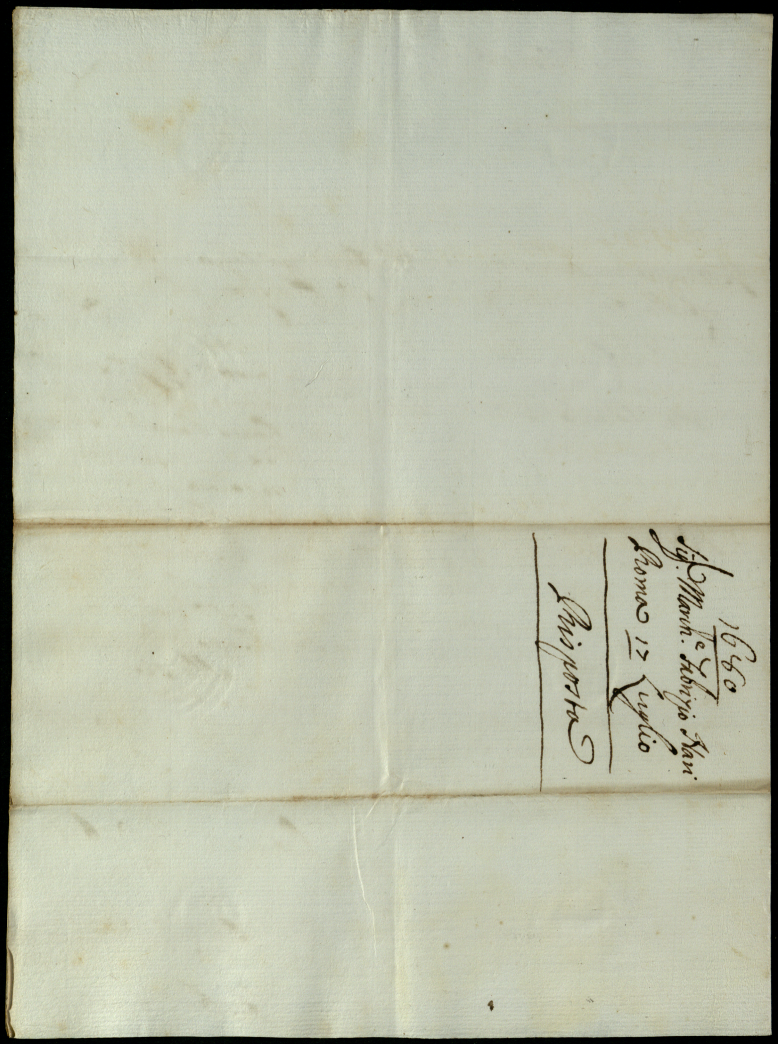 1680
Sig.r March.e Fabrizio Nari
Roma 17 Luglio
Risposta